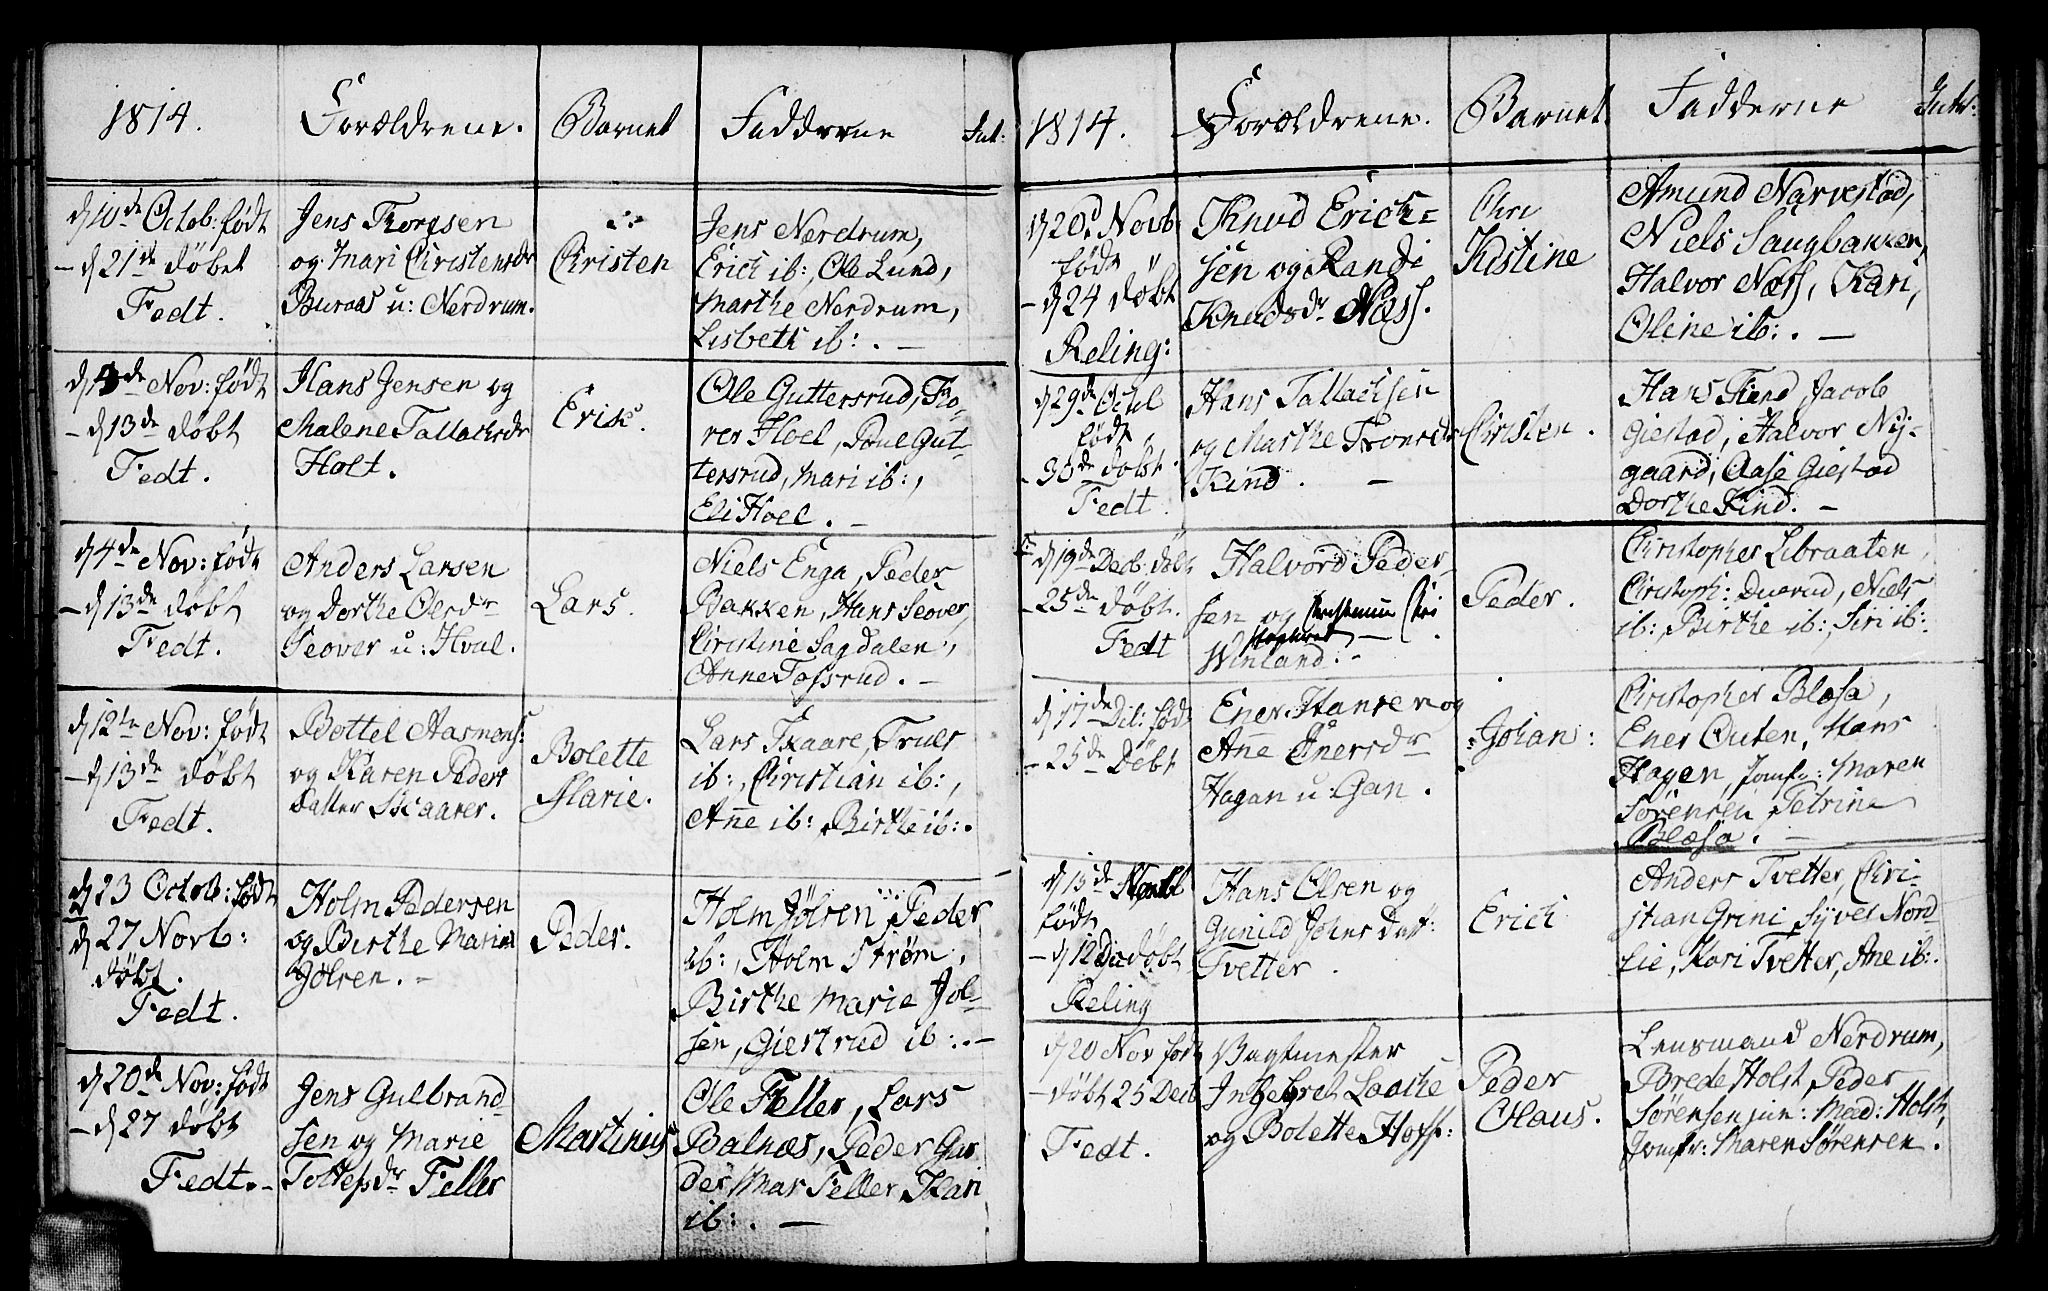 1814.
Forældrene.
Barnet
Fadderne
Int:
d 10de Octob: født
– d 21de døbt
Fedt.
Jens Thorgsen
og Mari Christensdr
Buraas u: Nerdrum.
Christen
Jens Nærdrum,
Erich ib:, Ole Lund,
Marthe Nordrum,
Lisbeth ib:. –
de Nov: født
– d 13de døbt
Fedt.
Hans Jensen og
Malene Tallachsdr
Holt.
Erik.
Ole Guttersrud, Tho-
rer Hoel, Poul Gut-
tersrud, Mari ib:,
Eli Hoel. –
d 4de Nov: født
– d 13de døbt
Fedt.
Anders Larsen
og Dorthe Olsdr
Seover u: Hval.
Lars.
Niels Enga, Peder
Bakken, Hans Seover,
Christine Sagdalen,
Anne Tossrud. –
d 12te Nov: født
– d 13de døbt
Fedt.
Bottel Aamons:
og Karen Peders
datter Skaarer.
Bolette
Marie.
Lars Skaare, Truls
ib:, Christian ib:,
Añe ib: Birthe ib:.
d 23 Octob: født
d 27 Novb:
døbt.
Fedt.
Holm Pedersen
og Birthe Marie
Jølsen. –
Peder.
Holm Jølsen, Peder
ib:, Holm Strøm,
Birthe Marie Jol-
sen, Giertrud ib:. –
d 20de Nov: født
– d 27 døbt
Fedt. –
Jens Gulbrand-
sen og Marie
Feller
Martinus
Ole Feller, Lars
Balnæs, Peder Gar
der, Mar Feller, Kari
ib:. –
1814.
Forældrene.
Barnet
Fadderne
Intr:
d 20d Novb
født
– d 24 døbt
Reling:
Knud Erich-
sen og Randi
Knudsdr Næss.
Chri
Kistine
Amund Narvestad,
Niels Saugbakken,
Halvor Næss, Kari,
Oline ib:. –
d 29de Octob
født
– 30de døbt
Fedt.
Hans Tallachsen
og Marthe Thorsdr
Kind. –
Christen.
Hans Kind, Jacob
Giestad, Halvor Ny-
gaard, Aase Giestad
Dorthe Kind. –
d 19de Decb: født
– 25de døbt.
Fedt
Halvord Peder
sen og
Winland. –
Peder.
Christopher Libraaten,
Christoph: Duerud, Niels
ib:, Birthe ib:, Siri ib:
d 17de født
– 25de Døbt
Ener Hansen og
Añe Enersdr
Hagan u: Gan.
Johan:
Christopher Blæsa,
Ener Outen, Hans
Hagen, Jomfr: Maren
Sørensen, Petrine
Blæsa. –
d 13de
født
– d 12 døbt
Reling
Hans Olsen og
Gunild Johns Dat:
Tvetter.
Erich
Anders Tvetter, Chri-
stian Grini, Syver Nord
lie, Kari Tvetter, Ane ib:.
d 20 Nov født
– døbt 25 Decb
Fedt.
Vagtmester
Ingebret Laache
og Bolette Hoff:
Peder
Olaus.
Lensmand Nerdrum,
Brede Holst, Peder
Sørensen jun: Mad: Holst,
Jomfr: Maren Sørensen.